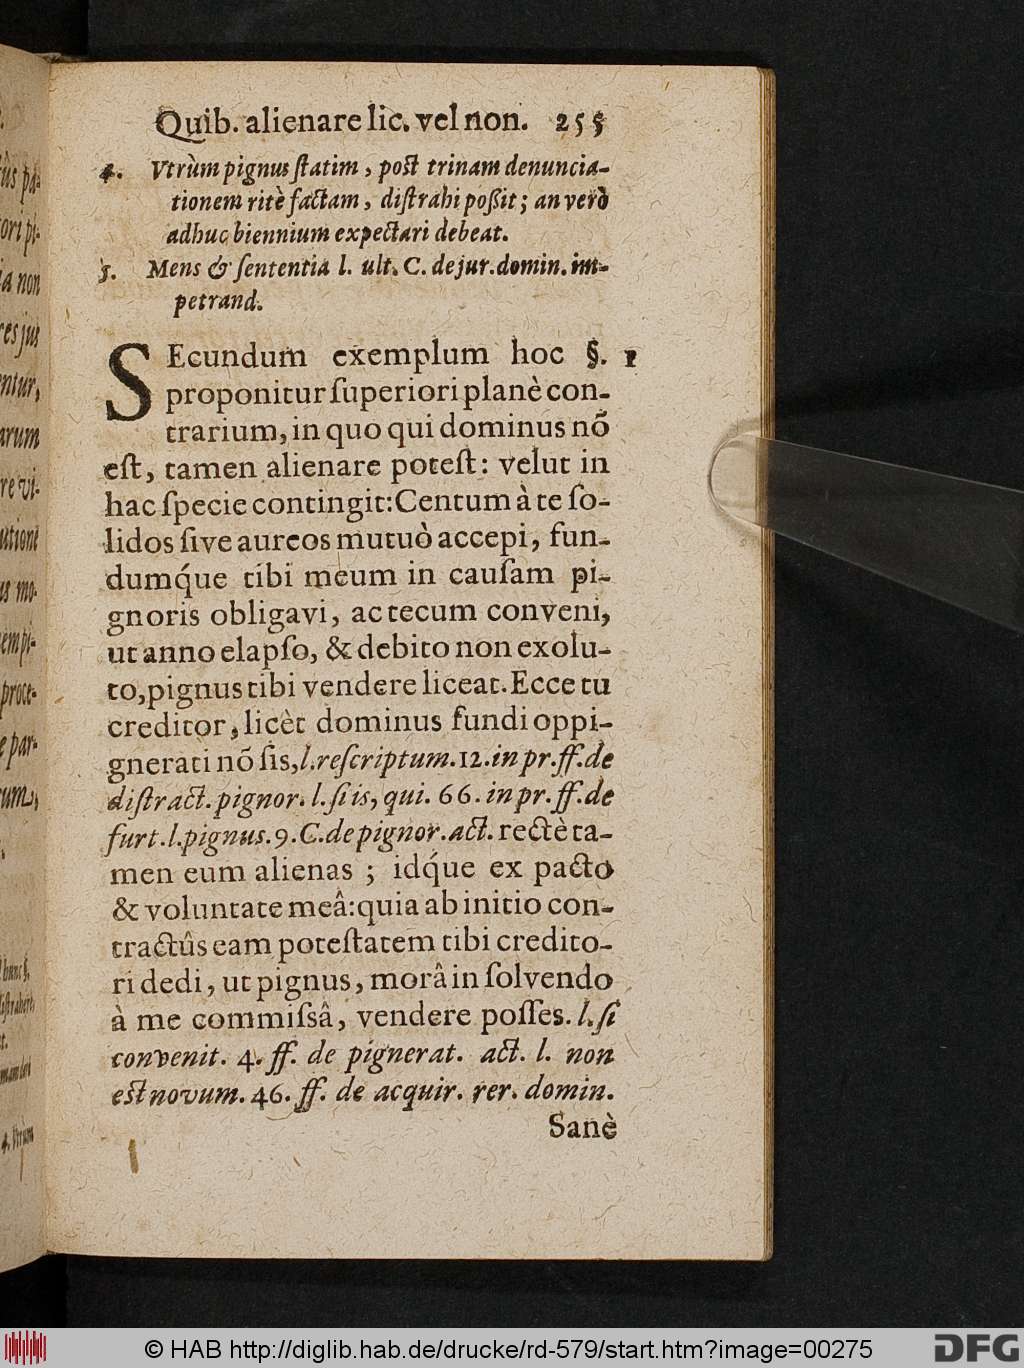 Quib. alienare lic. vel non. 255
4. Vtrùm pignus ſtatim, poſt trinam denuncia-
tionem ritè factam, diſtrahi poßit; an verò
adhuc biennium expectari debeat.
5. Mens & ſententia l. ult. C. de jur. domin. im-
petrand.
SEcundum exemplum hoc §. 1
proponitur ſuperiori planè con-
trarium, in quo qui dominus nõ
eſt, tamen alienare poteſt: velut in
hac ſpecie contingit: Centum à te ſo-
lidos ſive aureos mutuò accepi, fun-
dumq́ue tibi meum in cauſam pi-
gnoris obligavi, ac tecum conveni,
ut anno elapſo, & debito non exolu-
to, pignus tibi vendere liceat. Ecce tu
creditor, licèt dominus fundi oppi-
gnerati nõ ſis, l. reſcriptum. 12. in pr. ff. de
diſtract. pignor. l. ſi is, qui. 66. in pr. ff. de
furt. l. pignus. 9. C. de pignor. act. rectè ta-
men eum alienas; idq́ue ex pacto
& voluntate meâ: quia ab initio con-
tractûs eam poteſtatem tibi credito-
ri dedi, ut pignus, morâ in ſolvendo
à me commiſsâ, vendere poſſes. l. ſi
convenit. 4. ff. de pignerat. act. l. non
eſt novum. 46. ff. de acquir. rer. domin.
Sanè
© HAB http://diglib.hab.de/drucke/rd-579/start.htm?image=00275
DFG